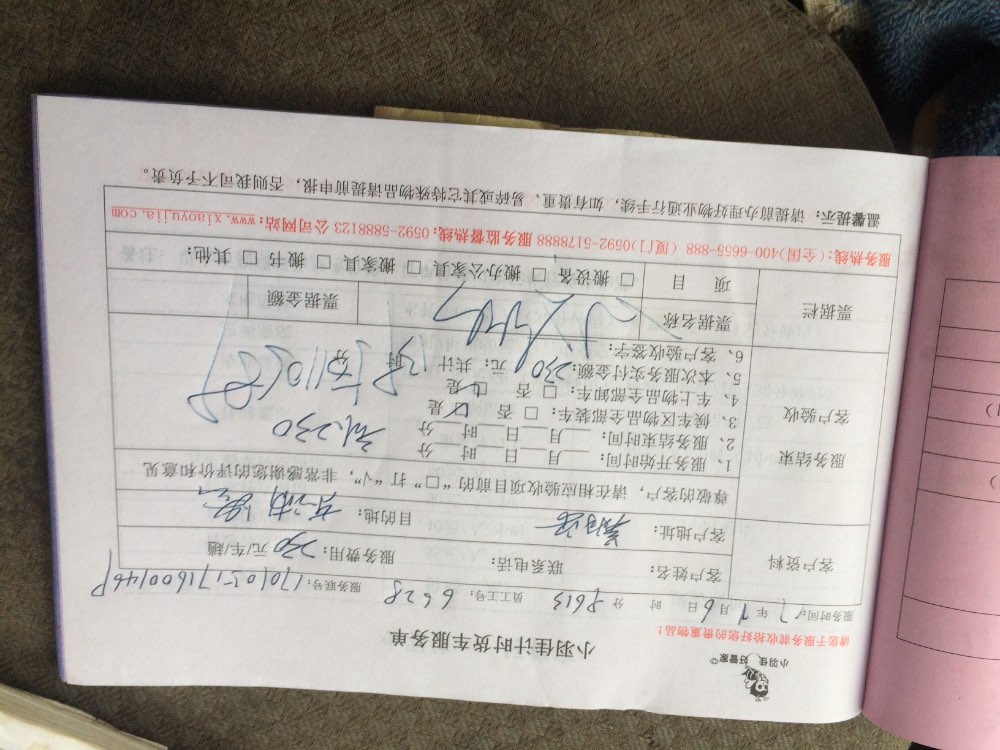 小羽佳 好管家
小羽佳计时货车服务单
请您于服务前收拾好您的贵重物品！
服务时间：17年1月6日 时 分 8613 员工工号：6628 服务联号：
客户资料
客户姓名： 联系电话： 服务费用：230元/车/趟
客户地址： 目的地：
服务结束 客户验收
尊敬的客户，请在相应验收项目前的“□”打“√”，非常感谢您的评价和意见
1、服务开始时间： 月 日 时 分
2、服务结束时间： 月 日 时 分
3、候车区物品全部装：□ 否 ☑ 是
4、车上物品全部卸车：□ 否 ☑ 是
5、本次服务实付金额：230元；共计 时 分
6、客户验收签字：
票据栏
票据名称 票据金额
项目 □ 搬设备 □ 搬办公家具 □ 搬家具 □ 搬书 □ 其他：
服务热线：(全国)400-6655-888 (厦门)0592-5178888 服务监督热线：0592-5888123 公司网站：www.xiaoyujia.com
温馨提示：请提前办理好物业通行手续，如有贵重、易碎或其它特殊物品请提前申报，否则我司不予负责。